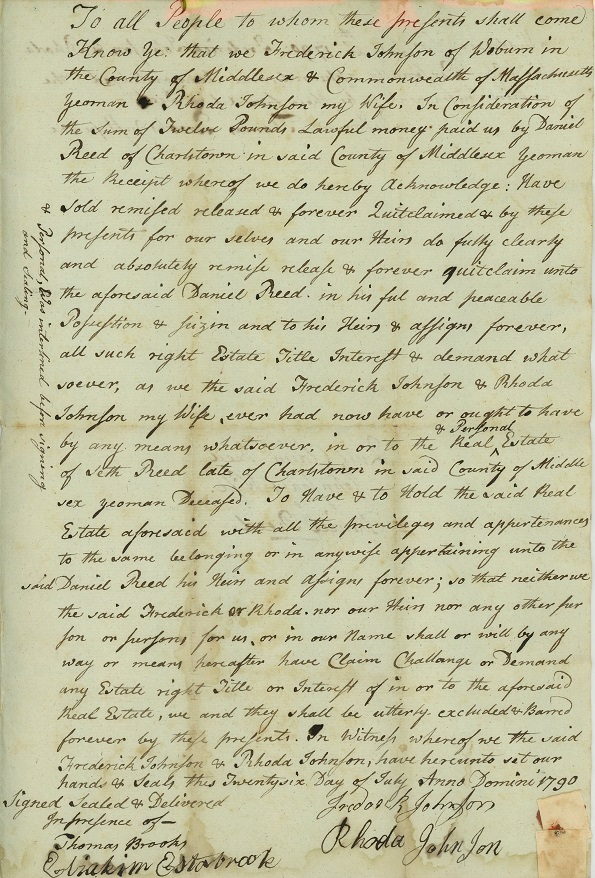 To all People to whom these presents shall come
Know Ye: that we Frederick Johnson of Woburn in
the County of Middlesex & Commonwealth of Massachusetts
Yeoman & Rhoda Johnson my Wife. In Consideration of
the Sum of Twelve Pounds Lawful money paid us by Daniel
Reed of Charlstown in said County of Middlesex Yeoman
the Receipt whereof we do hereby Acknowledge: Have
sold remised released & forever Quitclaimed & by these
presents for our selves and our Heirs do fully clearly
and absolutely remise release & forever quitclaim unto
the aforesaid Daniel Reed. in his ful and peaceable
Possestion & Sizin and to his Heirs & assigns forever,
all such right Estate Title Interest & demand what
soever, as we the said Frederick Johnson & Rhoda
Johnson my Wife ever had now have or ought to have
& Personal
by any means whatsoever. in or to the Real Estate
of Seth Reed late of Charlstown in said County of Middle
sex yeoman Deceased. To Have & to Hold the said Real
Estate aforesaid with all the privileges and appertenances
to the same belonging or in anywise appertaining unto the
said Daniel Reed his Heirs and assigns forever; so that neither we
the said Frederick or Rhoda. nor our Heirs nor any other per
son or persons for us, or in our Name shall or will by any
way or means hereafter have Claim Challange or Demand
any Estate right Title or Interest of in or to the aforesaid
Real Estate, we and they shall be utterly excluded & Barred
forever by these presents. In Witness whereof we the said
Frederick Johnson & Rhoda Johnson, have hereunto set our
hands & Seals this Twentysix Day of July Anno Domini 1790
Signed Sealed & Delivered
In presence of—
Thomas Brooks
Eliakim Estabrook
Johnson
Rhoda Johnson
& Personal, was interlined before signing
and Sealing